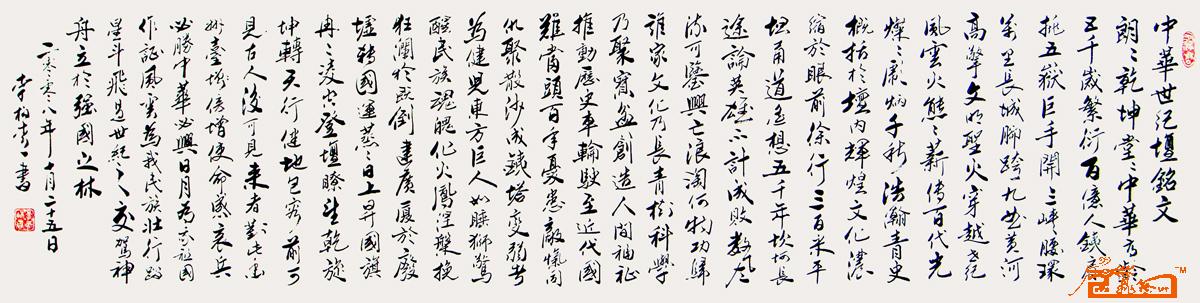 中華世紀壇銘文
朗々乾坤堂々中華高齡
五千歲繁衍百億人鐵肩
挑五嶽巨手開三峽腰環
萬里長城腳跨九曲黃河
高擎文明聖火穿越世紀
風雲火熊々薪傳百代光
燦々彪炳千秋浩瀚青史
概括於壇內輝煌文化濃
縮於眼前徐行三百米平
坦甬道遙想五千年坎坷長
途論英雄不計成敗數風
流可鑒興亡浪淘何物功歸
誰家文化乃長青樹科學
乃聚寶盆創造人間福祉
推動歷史車輪駛至近代國
難當頭百年憂患敵愾同
仇聚散沙成鐵塔變弱者
為健兒東方巨人如睡獅驚
醒民族魂魄化火鳳涅槃挽
狂瀾於既倒建廣廈於廢
墟轉國運蒸々日上昇國旗
冉々凌空登壇瞭望乾旋
坤轉天行健地包容前可
見古人後可見來者對此
臺倍增使命感哀兵
必勝中華必興日月為我祖國
作證風雲為我民族壯行跨
星斗飛過世紀之交駕神
舟立於強國之林
二零零八年十月二十五日
李柏書